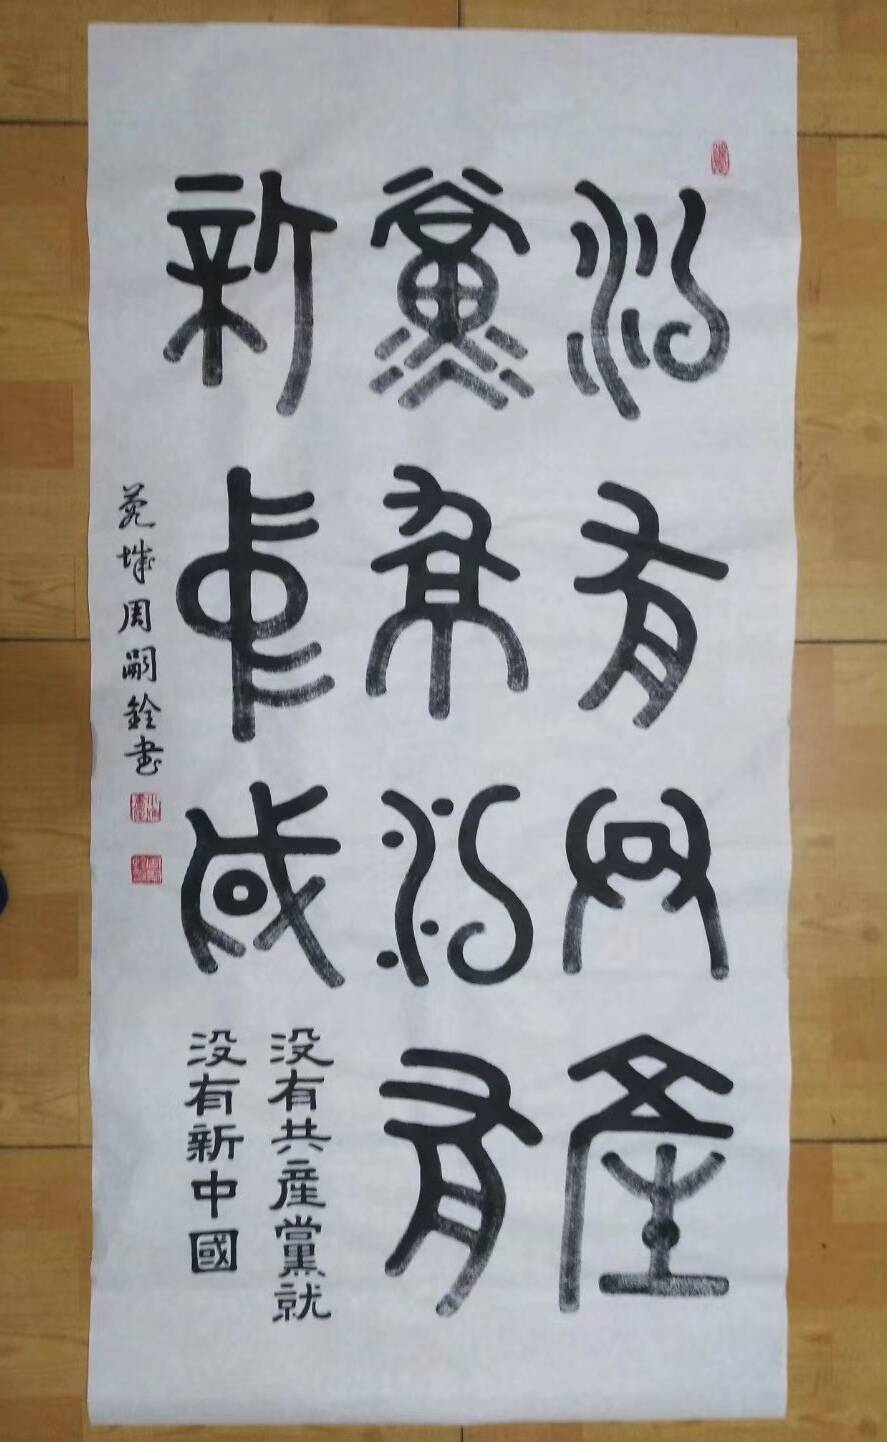 没有共產
黨就没有
新中國
没有共產黨就
没有新中國
城周嗣銓書